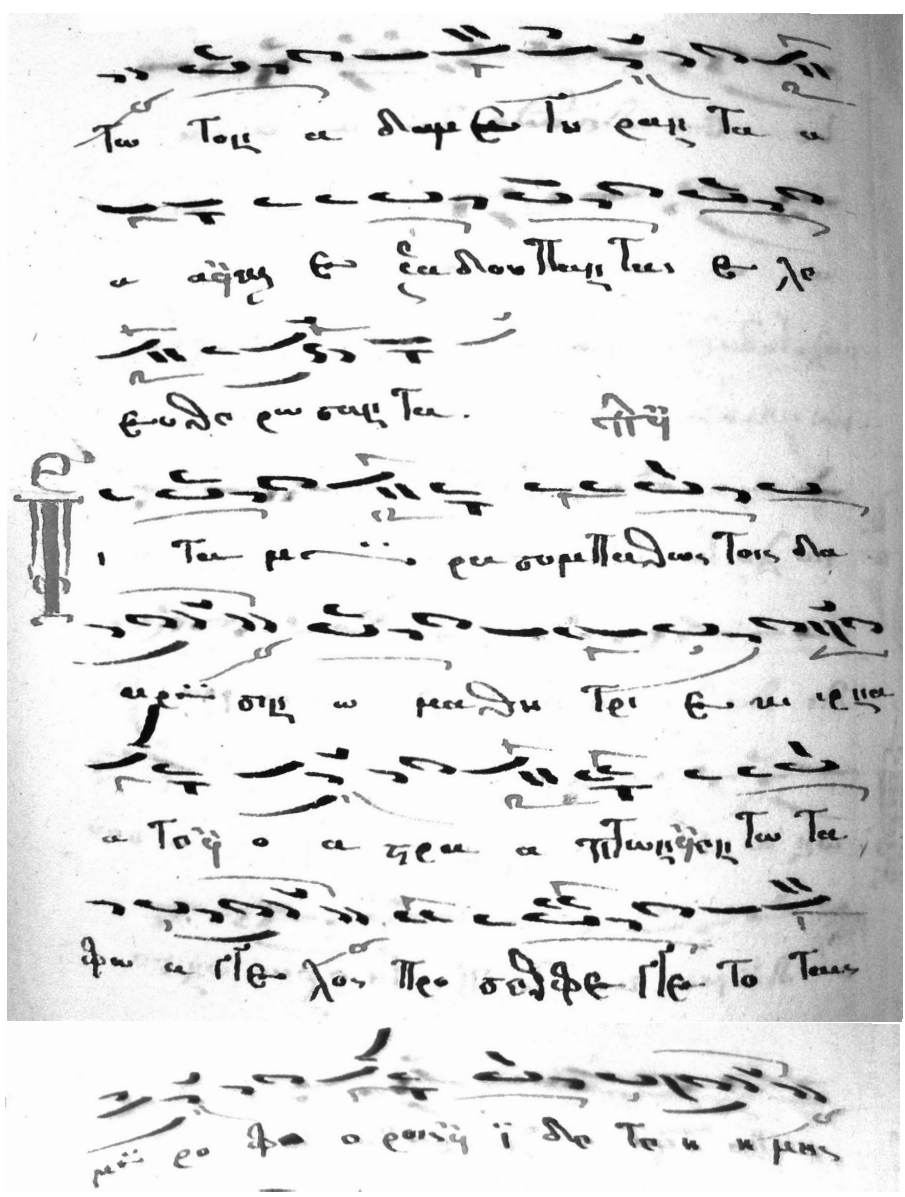 τω τον α δαμ ε γει ραν τα α
α και ε ξα δου παν τας ε λε
ευθε ρω σαν τα.
Τ ι τα μυ ρα συμπαθως τοις δα
α κρυ σιν ω μαθη τρι ε κι ιρνα
α τε ο α στρα α πτων εν τω τα
φω α γγε λος προ σεφθε γγε το ταις
μυ ρο φο ο ροις ϊ δε τε η η μεις